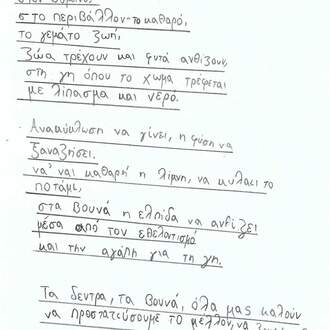 στο περιβάλλον το καθαρό,
το γεμάτο ζωή,
ζώα τρέχουν και φυτά ανθίζουν,
στη γη όπου το χώμα τρέφεται
με λίπασμα και νερό.
Ανακύκλωση να γίνει, η φύση να
ξαναζήσει.
να 'ναι καθαρή η λίμνη, να κυλάει το
ποτάμι,
στα βουνά η ελπίδα να ανθίζει
μέσα από τον εθελοντισμό
και την αγάπη για τη γη.
Τα δεντρα, τα βουνά, όλα μας καλούν
να προστατεύσουμε το μέλλον, να